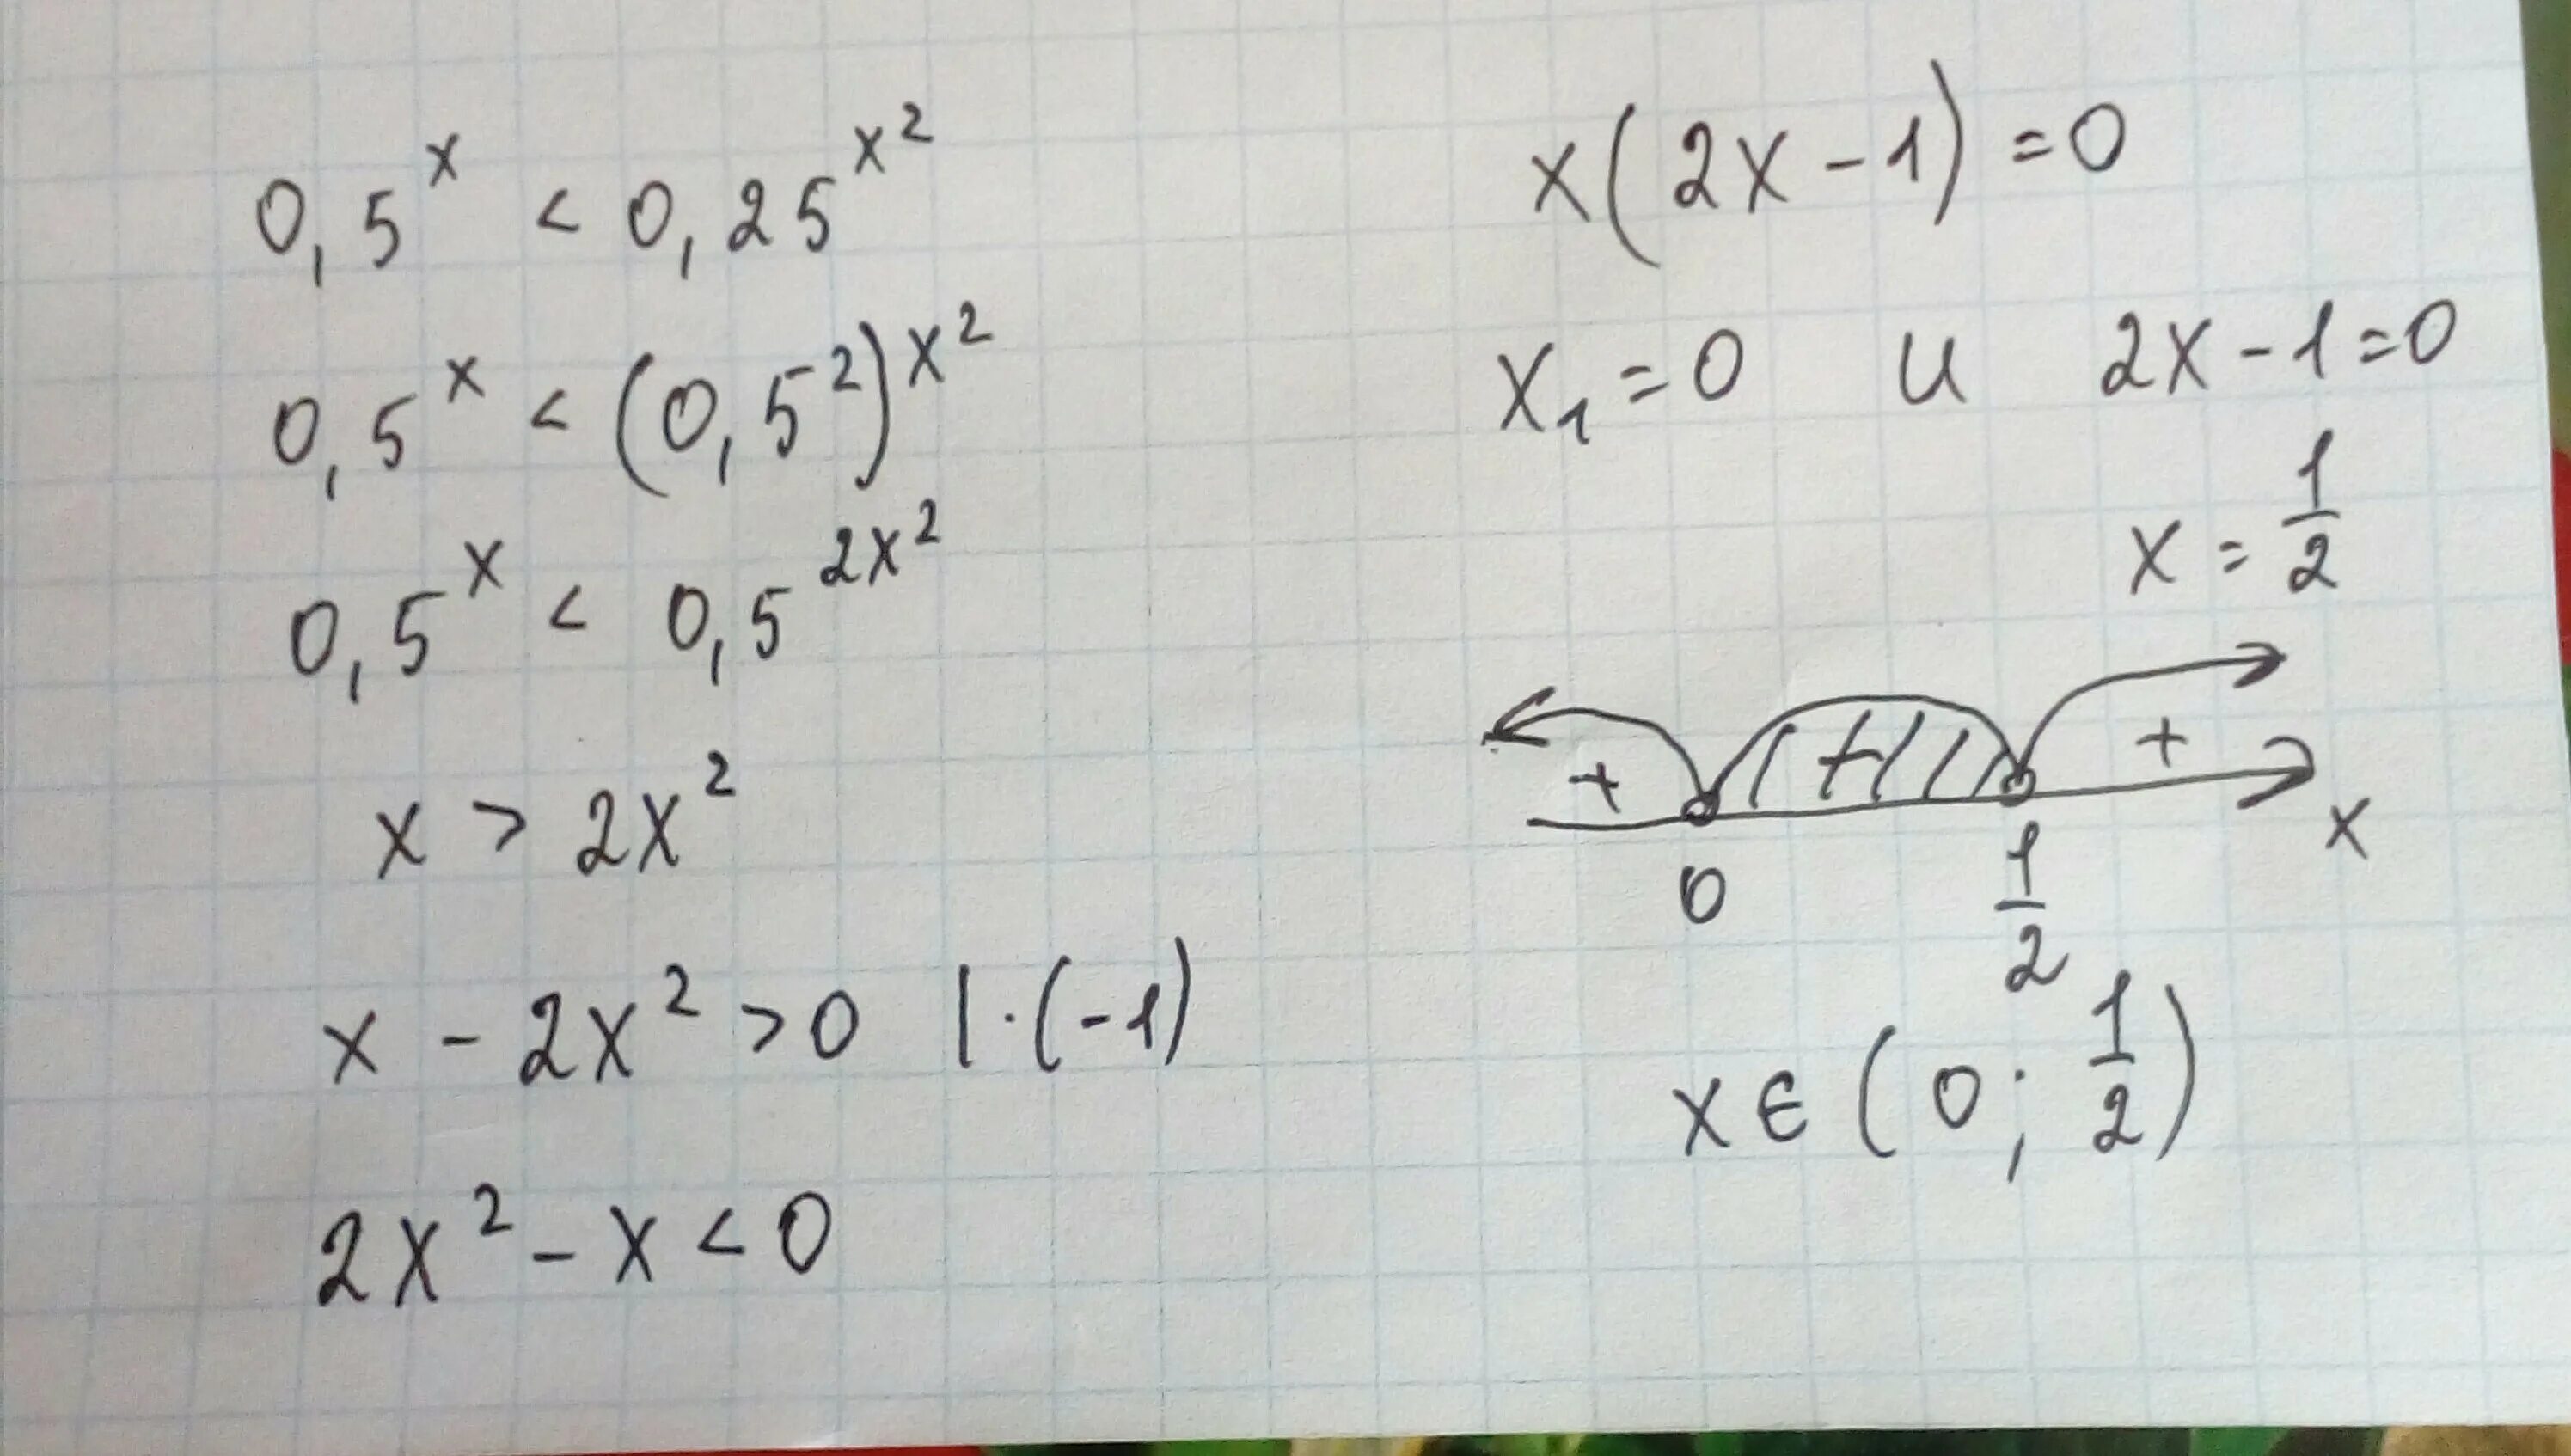 0,5^x < 0,25^{x^2}
0,5^x < (0,5^2)^{x^2}
0,5^x < 0,5^{2x^2}
x > 2x^2
x - 2x^2 > 0 | · (-1)
2x^2 - x < 0
x(2x - 1) = 0
x_1 = 0 и 2x - 1 = 0
x = 1/2
+ + +
0 1/2 x
x ∈ (0; 1/2)